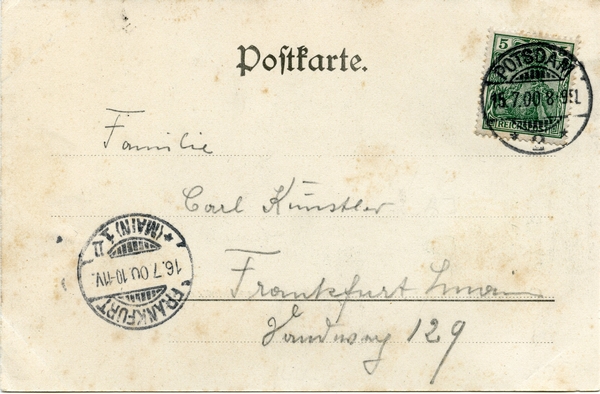 Postkarte.
5
REICHSPOST
POTSDAM
15.7.00.8-9N.
* 2 *
Familie
Carl Künstler
Frankfurt
129
*(MAIN) 1
16.7.00.10-11V.
FRANKFURT